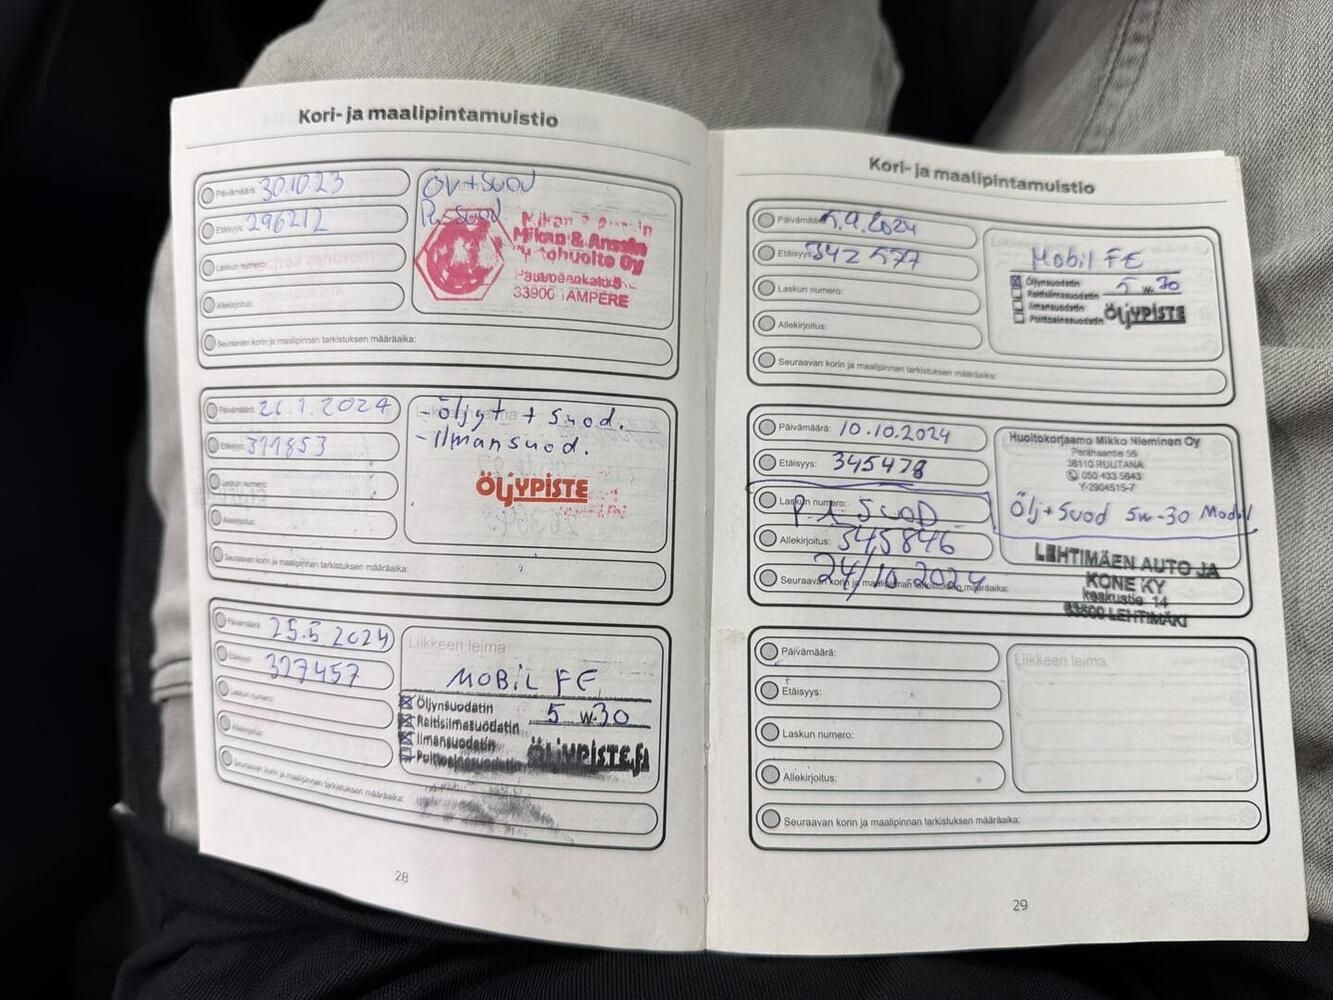 Kori- ja maalipintamuistio
Päivämäärä: 30.10.23
Etäisyys: 296212
Laskun numero:
Allekirjoitus:
Seuraavan korin ja maalipinnan tarkistuksen määräaika:
Öly+suod
Mikan & Anssin
Autohuolto Oy
33900 TAMPERE
Päivämäärä: 26.1.2024
Etäisyys: 311853
Laskun numero:
Allekirjoitus:
Seuraavan korin ja maalipinnan tarkistuksen määräaika:
Liikkeen leima
- öljyt + suod.
- Ilmansuod.
ÖLJYPISTE
Päivämäärä: 25.5.2024
Etäisyys: 327457
Laskun numero:
Allekirjoitus:
Seuraavan korin ja maalipinnan tarkistuksen määräaika:
Liikkeen leima
MOBIL FE
Öljynsuodatin 5 w-30
Raitisilmasuodatin
Ilmansuodatin
Polttoainesuodatin ÖLJYPISTE.fi
28
Kori- ja maalipintamuistio
Päivämäärä: 5.9.2024
Etäisyys: 342577
Laskun numero:
Allekirjoitus:
Seuraavan korin ja maalipinnan tarkistuksen määräaika:
Liikkeen leima
Mobil FE
Öljynsuodatin 5 w-30
Raitisilmasuodatin
Ilmansuodatin
Polttoainesuodatin ÖLJYPISTE
Päivämäärä: 10.10.2024
Etäisyys: 345478
Laskun numero:
SUOD
Allekirjoitus: 345846
Seuraavan korin ja maalipinnan tarkistuksen määräaika:
24/10.2024
Huoltokorjaamo Mikko Nieminen Oy
Perähaantie 5B
36110 RUUTANA
050 433 5643
Y-2904515-7
Ölj+Suod 5w-30 Mobil
LEHTIMÄEN AUTO JA
KONE KY
Keskustie 14
63500 LEHTIMÄKI
Päivämäärä:
Etäisyys:
Laskun numero:
Allekirjoitus:
Seuraavan korin ja maalipinnan tarkistuksen määräaika:
Liikkeen leima
29